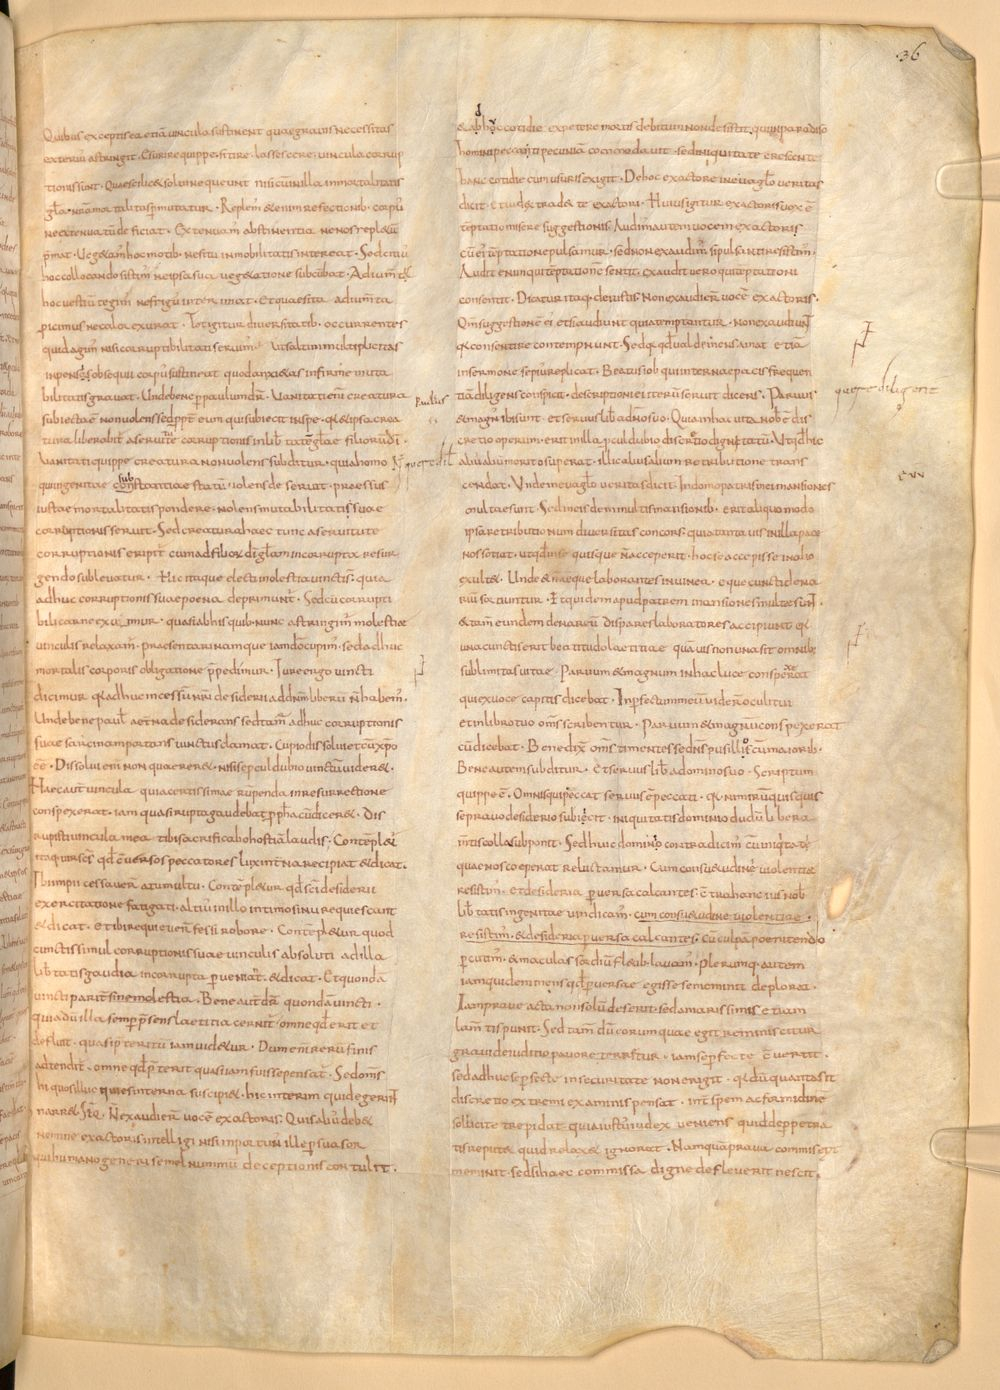 36
Quibus exceptis ea etiā vincula sustinent quae gravis necessitas
exterius astringit. Esurire quippe. sitire. lassescere. vincula corrup
tionis sunt. Quae scilic& solui nequeunt nisi cū in illa inmortalitatis
gła. nr̄a mortalitas ꝑmutatur. Replem' & enim refectionib. corpus
ne extenuatū deficiat. Extenuam' abstinentia ne nos repl&ū
p̄mat. Veg&am' hoc motib. ne situ inmobilitatis intereat. Sed citius
hoc collocando sistim' ne ipsa sua veg&atione subcūbat. Adium&
hoc vestiū tegim' ne frigus interimat. Et quaesita adiumta
picimus ne calor exurat. Tot igitur diversitatib. occurrentes
quid agim' nisi corruptibilitati servim'. Ut saltum multiplicitas
inpensi obsequii corpus sustineat quod anxi&as infirme muta
bilitatis gravat. Unde bene ꝑ paulum dr̄. Vanitati enī creatura
subiecta ē non volens sed ꝓpt̄ eum qui subiecit in spe. quia & ipsa crea
tura liberabit̄ a servitute corruptionis in libtatē glae filiorū dī.
Vanitati quippe creatura non volens subditur. quia homo
qui ingenitae substantiae statū volens deseruit. praessus
iustae mortalitatis pondere. nolens mutabilitatis suae
corruptioni servit. Sed creatura haec tunc a servitute
corruptionis eripit̄ cum ad filiorū dī głam incorrupta resur
gendo sublevatur. Hic itaque electi molestia vincti s. quia
adhuc corruptionis suae poena deprimunt̄. Sed cū corrupti
bili carne exuimur. quasi ab his quib. nunc astringim' molestiae
vinculis relaxam'. praesentari namque iam dō cupim'. sed adhuc
mortalis corporis obligatione praepedimur. Iure ergo vincti
dicimur quia adhuc incessū nr̄i desiderii ad dm̄ liberū n̄ habem'.
Unde bene paul' aetna desiderans sed tam̄ adhuc corruptionis
suae sarcinam portans vinctus clamat. Cupio dissolui et cū xp̄o
eē. Dissolui enī non quaerer&. nisi se ꝓculdubio vinctū vider&.
Haec aut̄ vincula quia certissimae rumpenda in resurrectione
conspexerat. iam quasi rupta gaudebat ꝓpha cū dicer&. Dis
rupisti vincula mea tibi sacrificabo hostiā laudis. Contēpl&
itaq; vir scs̄ qd̄ cversos peccatores lux intna recipiat & dicat.
Ibi impii cessaver̄ a tumultu. Contēpl&ur qd̄ sci desiderii
exercitatione fatigati. altius in illo intimo sinu requiescant
& dicat. Et ibi requiever̄ fessi robore. Contēpl&ur quod
cuncti simul corruptionis suae vinculis absoluti ad illa
libtatis gaudia incorrupta ꝑveniant. & dicat. Et quonda
vincti parit̄ sine molestia. Bene aut̄ dr̄ quondā vincti.
quia dū illa semꝑ p̄sens laetitia cernit̄ omne qd̄ erit et
defluit. quasi p̄teritū iam vid&ur. Dum enī rerū finis
adtendit̄. omne qd̄ p̄terit quasi iam fuisse pensat̄. Sed omīs
hi quos illuc quies interna suscipi&. hic interim quid egerint
narr& Seq̄. N̄ exaudier̄ vocē exactoris. Quis alius deb&
nomine exactoris intellegi nisi importun' ille ꝑsuasor
qui humano generi semel nummū deceptionis contulit.
Paulus
quere dil
& ab hoc cotidie expetere mortis debitum non desistit. qui in paradiso
homini peccanti pecuniā commodavit. sed iniquitate crescente
hanc cotidie cum usuris exigit. De hoc exactore in evaglo veritas
dicit. Et iud& trad& te exactori. Huius igitur exactoris vox ē
tēptatio misere suggestionis. Audim' autem vocem exactoris
cū ei' tēptatione pulsamur. sed non exaudim' si pulsanti resistim'.
Audit enim qui tēptationē sentit. exaudit vero qui tēptationi
consentit. Dicatur itaq; de iustis. Non exaudier̄ vocē exactoris.
Qm̄ suggestionē ei' etsi audiunt quia temptantur. non exaudiunt
quia consentire contempnunt. Sed quia qd̄ valde mens amat etiā
in sermone sepius replicat. Beatus iob qui internae pacis frequen
tiā diligens conspicit. descriptioni ei' iterū servit dicens. Parvus
& magn' ibi sunt. et servus lib a dn̄o suo. Quia in hac vita nob ē dis
cretio operum. erit in illa ꝓculdubio discretio dignitatū. Ut qd̄ hic
alius aliū merito superat. illic alius alium retributione trans
cendat. Unde in evaglo veritas dicit. In domo patris mei mansiones
multae sunt. Sed in eisdem multis mansionib. erit aliquo modo
ipsa retributionum diversitas concors. quia tanta vis in illa pace
nos sociat. ut qd̄ in se quisque n̄ acceperit. hoc se accepisse in alio
exult&. Unde & n̄ aeque laborantes in vinea. eque cuncti dena
riū sortiuntur. Et quidem apud patrem mansiones multae sunt.
& tam̄ eundem denariū dispares laboratores accipiunt quia
una cunctis erit beatitudo laetitiae quāvis non una sit omnib.
sublimitas vitae. Parvum & magnum in hac luce conspexerat
qui ex voce capitis dicebat. Inpfectum meū vider̄ oculi tui
et in libro tuo om̄s scribentur. Parvum & magnū conspexerat
cū dicebat. Benedix̄ om̄s timentes se dn̄s pusillos cum maiorib.
Bene autem subditur. Et servus lib a domino suo. Scriptum
quippe ē. Omnis qui peccat servus ē peccati. quia nimirū quisquis
se pravo desiderio subicit. iniquitatis dominio dudū libera
mtis colla subponit. Sed huic domino contradicim' cū iniqtati
quae nos coeperat reluctamur. Cum consu&udine violent&
resistim'. et desideria ꝑversa calcantes. c̄tra hanc ius nob
libtatis ingenitae vindicam'. cum consu&udine violentiae.
resistim'. & desideria ꝑversa calcantes. Cū culpā poenitendo
ꝑcutim'. & maculas sordiū fl&ib. lavam'. Plerumq; autem
iam quidem mens qd̄ ꝑversae egisse se meminit deplorat.
Iam prave acta non solū deserit. sed amarissimis etiam
lam̄tis punit. Sed tam̄ dū eorum quae egit reminiscitur
gravi de iuditio pavore terretur. iam se ꝑfecte c̄vertit.
sed adhuc se ꝑfecte in securitate non erigit. quia dū quanta sit
discretio extremi examinis pensat. int̄ spem ac formidinē
sollicite trepidat. quia iustus iudex veniens quid de ꝑpetra
tis reput& quid relax& ignorat. Nam quā prava commiserit
meminit. sed si haec commissa digne defleverit nescit.
quere diligent